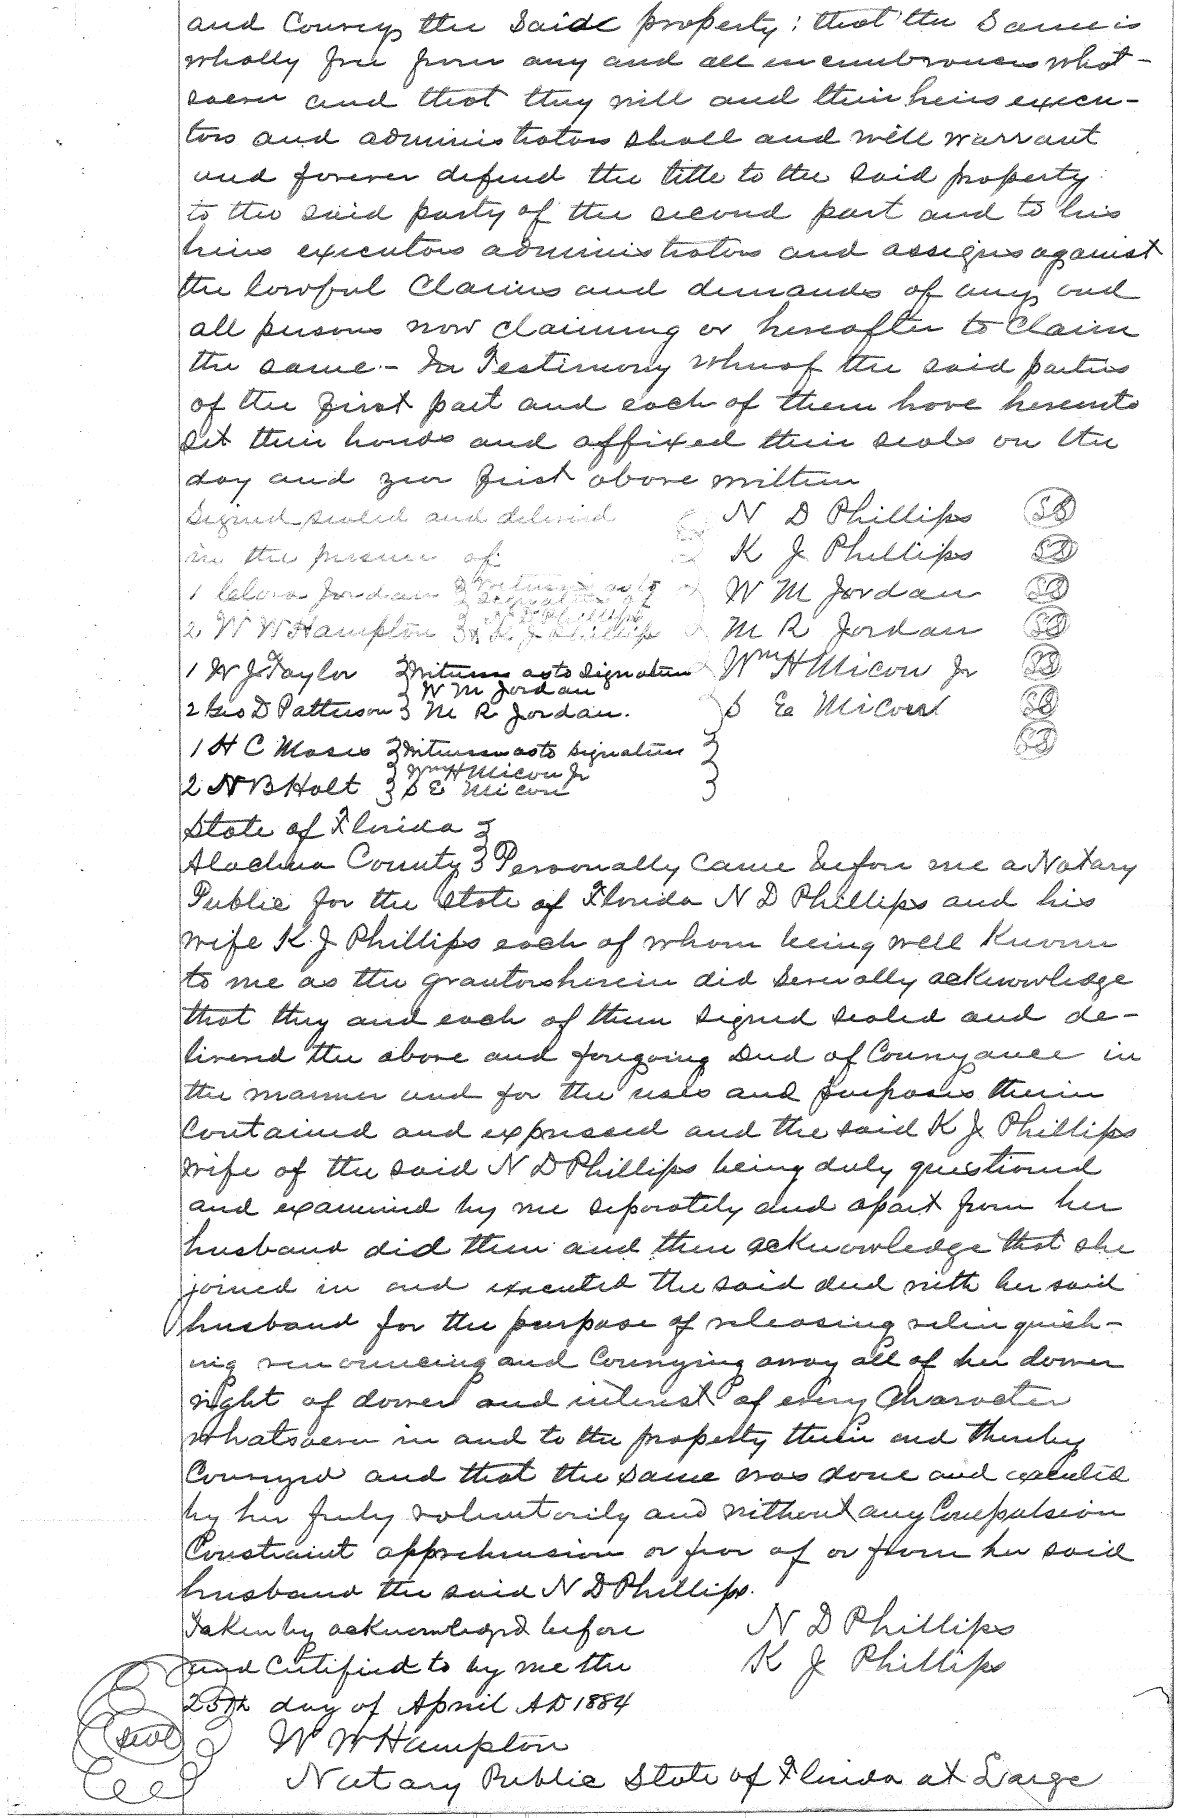 and Convey the Said property; that the Same is
wholly free from any and all encumbrances what-
soever and that they will and their heirs execu-
tors and administrators shall and will warrant
and forever defend the title to the said property
to the said party of the second part and to his
heirs executors administrators and assigns against
the lawful Claims and demands of any and
all persons now claiming or hereafter to Claim
the same.- In Testimony whereof the said parties
of the first part and each of them have hereunto
set their hands and affixed their seals on the
day and year first above written
Signed sealed and delivered N D Phillips SS
in the presence of K J Phillips SS
1 Clara Jordan Witness as to W M Jordan SS
signature of
N D Phillips
2 W W Hampton & K J Phillips M R Jordan SS
1 W J Taylor Witness as to Signature Wm H Micou Jr SS
W M Jordan
2 Geo D Patterson M R Jordan. S E Micou SS
1 H C Moses Witness as to Signature SS
Wm H Micou Jr
2 N B Holt S E Micou
State of Florida
Alachua County Personally Came before me a Notary
Public for the State of Florida N D Phillips and his
wife K J Phillips each of whom being well Known
to me as the grantors herein did Severally acknowledge
that they and each of them signed sealed and de-
livered the above and foregoing Deed of Conveyance in
the manner and for the uses and purposes therein
Contained and expressed and the said K J Phillips
wife of the said N D Phillips being duly questioned
and examined by me seperately and apart from her
husband did then and there acknowledge that she
joined in and executed the said deed with her said
husband for the purpose of releasing relinquish-
ing renouncing and Conveying away all of her dower
right of dower and interest of every Character
whatsoever in and to the property therein and thereby
Conveyed and that the same was done and executed
by her freely voluntarily and without any Compulsion
Constraint apprehension or fear of or from her said
husband the said N D Phillips.
Taken by acknowledged before N D Phillips
and Certified to by me the K J Phillips
25th day of April AD 1884
Seal W W Hampton
Notary Public State of Florida at Large